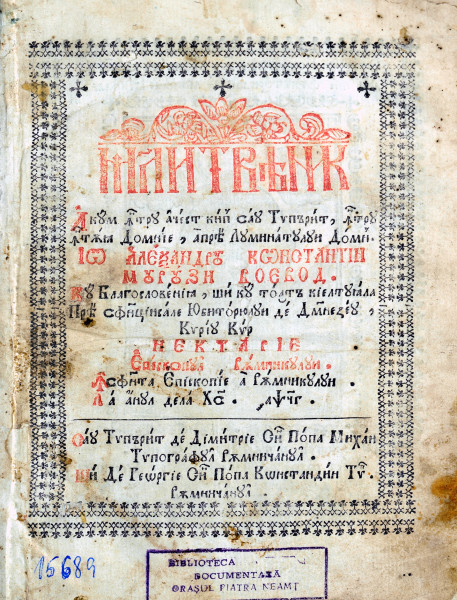 МЛТВЕНИК
Акум ꙟтру ачест кип сау Типърит, ꙟтру
ꙟтѫа Домніе, а прѣ Луминатулуи Домн
Іѡ Алеѯандру Кѡнстантин
Мурузи Воевод.
Ку Благословеніа, ши ку тоатъ кіелтуіала
Прѣ сфинціисале Юбиторюлуи де Дмнезеу,
Куріу Кур
Нектаріе
Епископул Рѫмникулуи.
ꙟ сфѫнта Епископіе а Рѫмникулуи.
Ла анул дела Хс.
Сау Типърит де Димитріе Син Попа Михаи
Типографул Рѫмничѣнул.
Ши де Георгіе Син Попа Константин Ти
Рѫмничѣнул.
15689
BIBLIOTECA
DOCUMENTARĂ
ORAŞUL PIATRA NEAMŢ